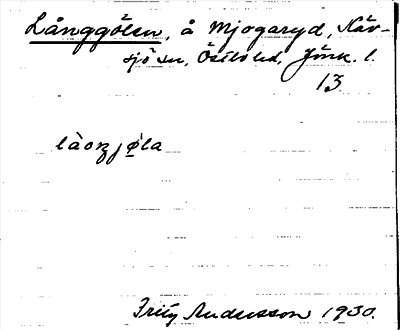 Långgölen, å Mjogaryd, Näv-
sjö sn, Östbo hd, Jönk. l.
13
làoŋjø̀la
Fritz Andersson 1930.